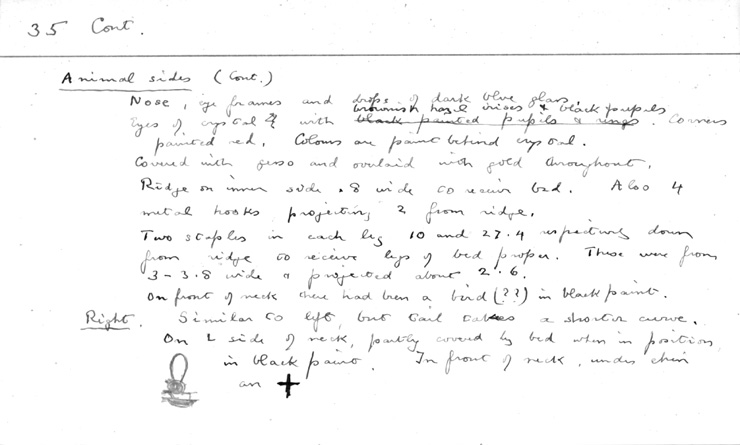 35 Cont.
Animal sides (Cont.)
Nose, eye frames and drops of dark blue glass.
brownish hazel irises & black pupils
Eyes of crystal & with black painted pupils & rings. Corners
painted red. Colours are paint behind crystal.
Covered with gesso and overlaid with gold throughout.
Ridge on inner side .8 wide to receive bed. Also 4
metal hooks projecting 2 from ridge.
Two staples in each leg 10 and 27.4 respectively down
from ridge to receive legs of bed proper. These were from
3-3.8 wide & projected about 2.6.
On front of neck there had been a bird (??) in black paint.
Right. Similar to left, but tail takes a shorter curve.
On L side of neck, partly covered by bed when in position,
in black paint. In front of neck, under chin
an